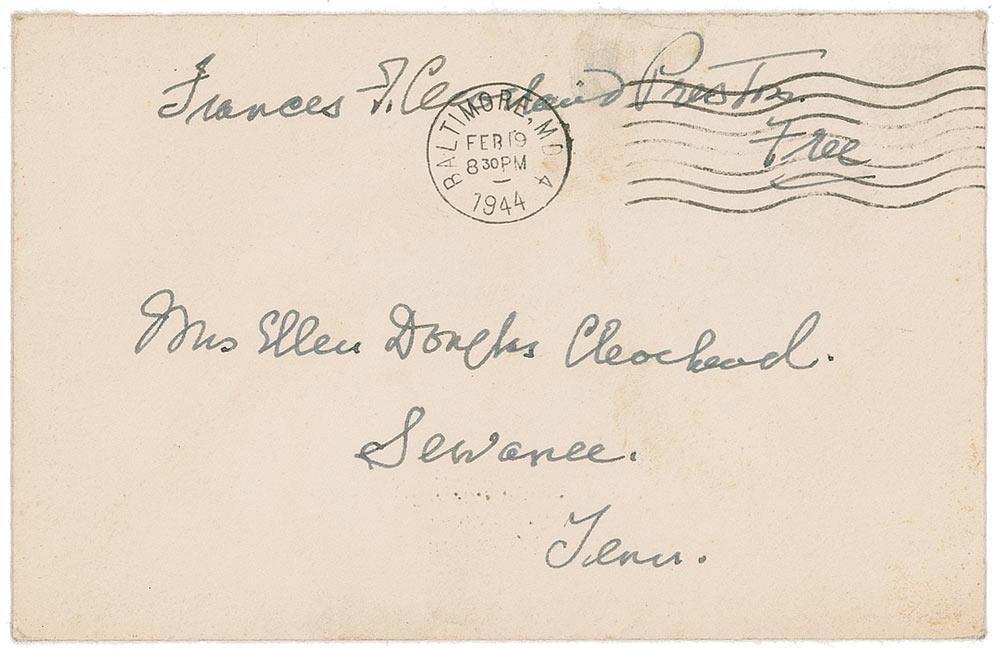 Frances F. Cleveland Preston.
Free
BALTIMORE, MD 4
FEB 19
8 30 PM
1944
Mrs Ellen Douglas Cleveland.
Sewanee.
Tenn.